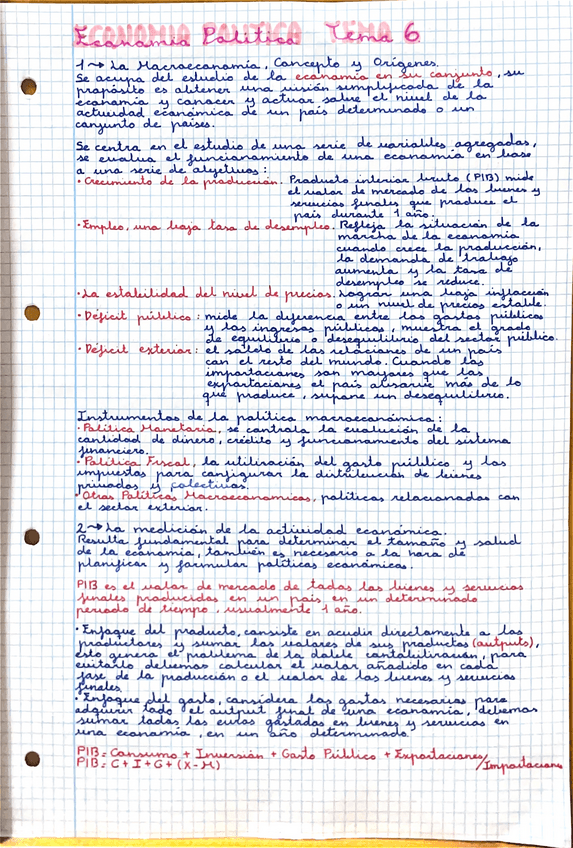 Economía Política Tema 6
1→ La Macroeconomía, Concepto y Orígenes.
Se ocupa del estudio de la economía en su conjunto, su
propósito es obtener una visión simplificada de la
economía y conocer y actuar sobre el nivel de la
actividad económica de un país determinado o un
conjunto de países.
Se centra en el estudio de una serie de variables agregadas,
se evalua el funcionamiento de una economía en base
a una serie de objetivos:
· Crecimiento de la producción. Producto interior bruto (PIB) mide
el valor de mercado de los bienes y
servicios finales que produce el
país durante 1 año.
· Empleo, una baja tasa de desempleo. Refleja la situación de la
marcha de la economía
cuando crece la producción,
la demanda de trabajo
aumenta y la tasa de
desempleo se reduce.
· La estabilidad del nivel de precios. Lograr una baja inflación
o un nivel de precios estable.
· Déficit público: mide la diferencia entre los gastos públicos
y los ingresos públicos, muestra el grado
de equilibrio o desequilibrio del sector público.
· Déficit exterior: el saldo de las relaciones de un país
con el resto del mundo. Cuando las
importaciones son mayores que las
exportaciones el país absorve más de lo
que produce, supone un desequilibrio.
Instrumentos de la política macroeconómica:
· Política Monetaria, se controla la evolución de la
cantidad de dinero, crédito y funcionamiento del sistema
financiero.
· Política Fiscal, la utilización del gasto público y los
impuestos para configurar la distribución de bienes
privados y colectivos.
· Otras Políticas Macroeconomicas, políticas relacionadas con
el sector exterior.
2→ La medición de la actividad económica.
Resulta fundamental para determinar el tamaño y salud
de la economía, también es necesario a la hora de
planificar y formular políticas económicas.
PIB es el valor de mercado de todos los bienes y servicios
finales producidos en un país en un determinado
periodo de tiempo, usualmente 1 año.
· Enfoque del producto, consiste en acudir directamente a los
productores y sumar los valores de sus productos (outputs),
esto genera el problema de la doble contabilización, para
evitarlo debemos calcular el valor añadido en cada
fase de la producción o el valor de los bienes y servicios
finales.
· Enfoque del gasto, considera los gastos necesarios para
adquirir todo el output final de una economía, debemos
sumar todos los euros gastados en bienes y servicios en
una economía, en un año determinado.
PIB = Consumo + Inversión + Gasto Público + Exportaciones/Importaciones
PIB = C + I + G + (X - M)